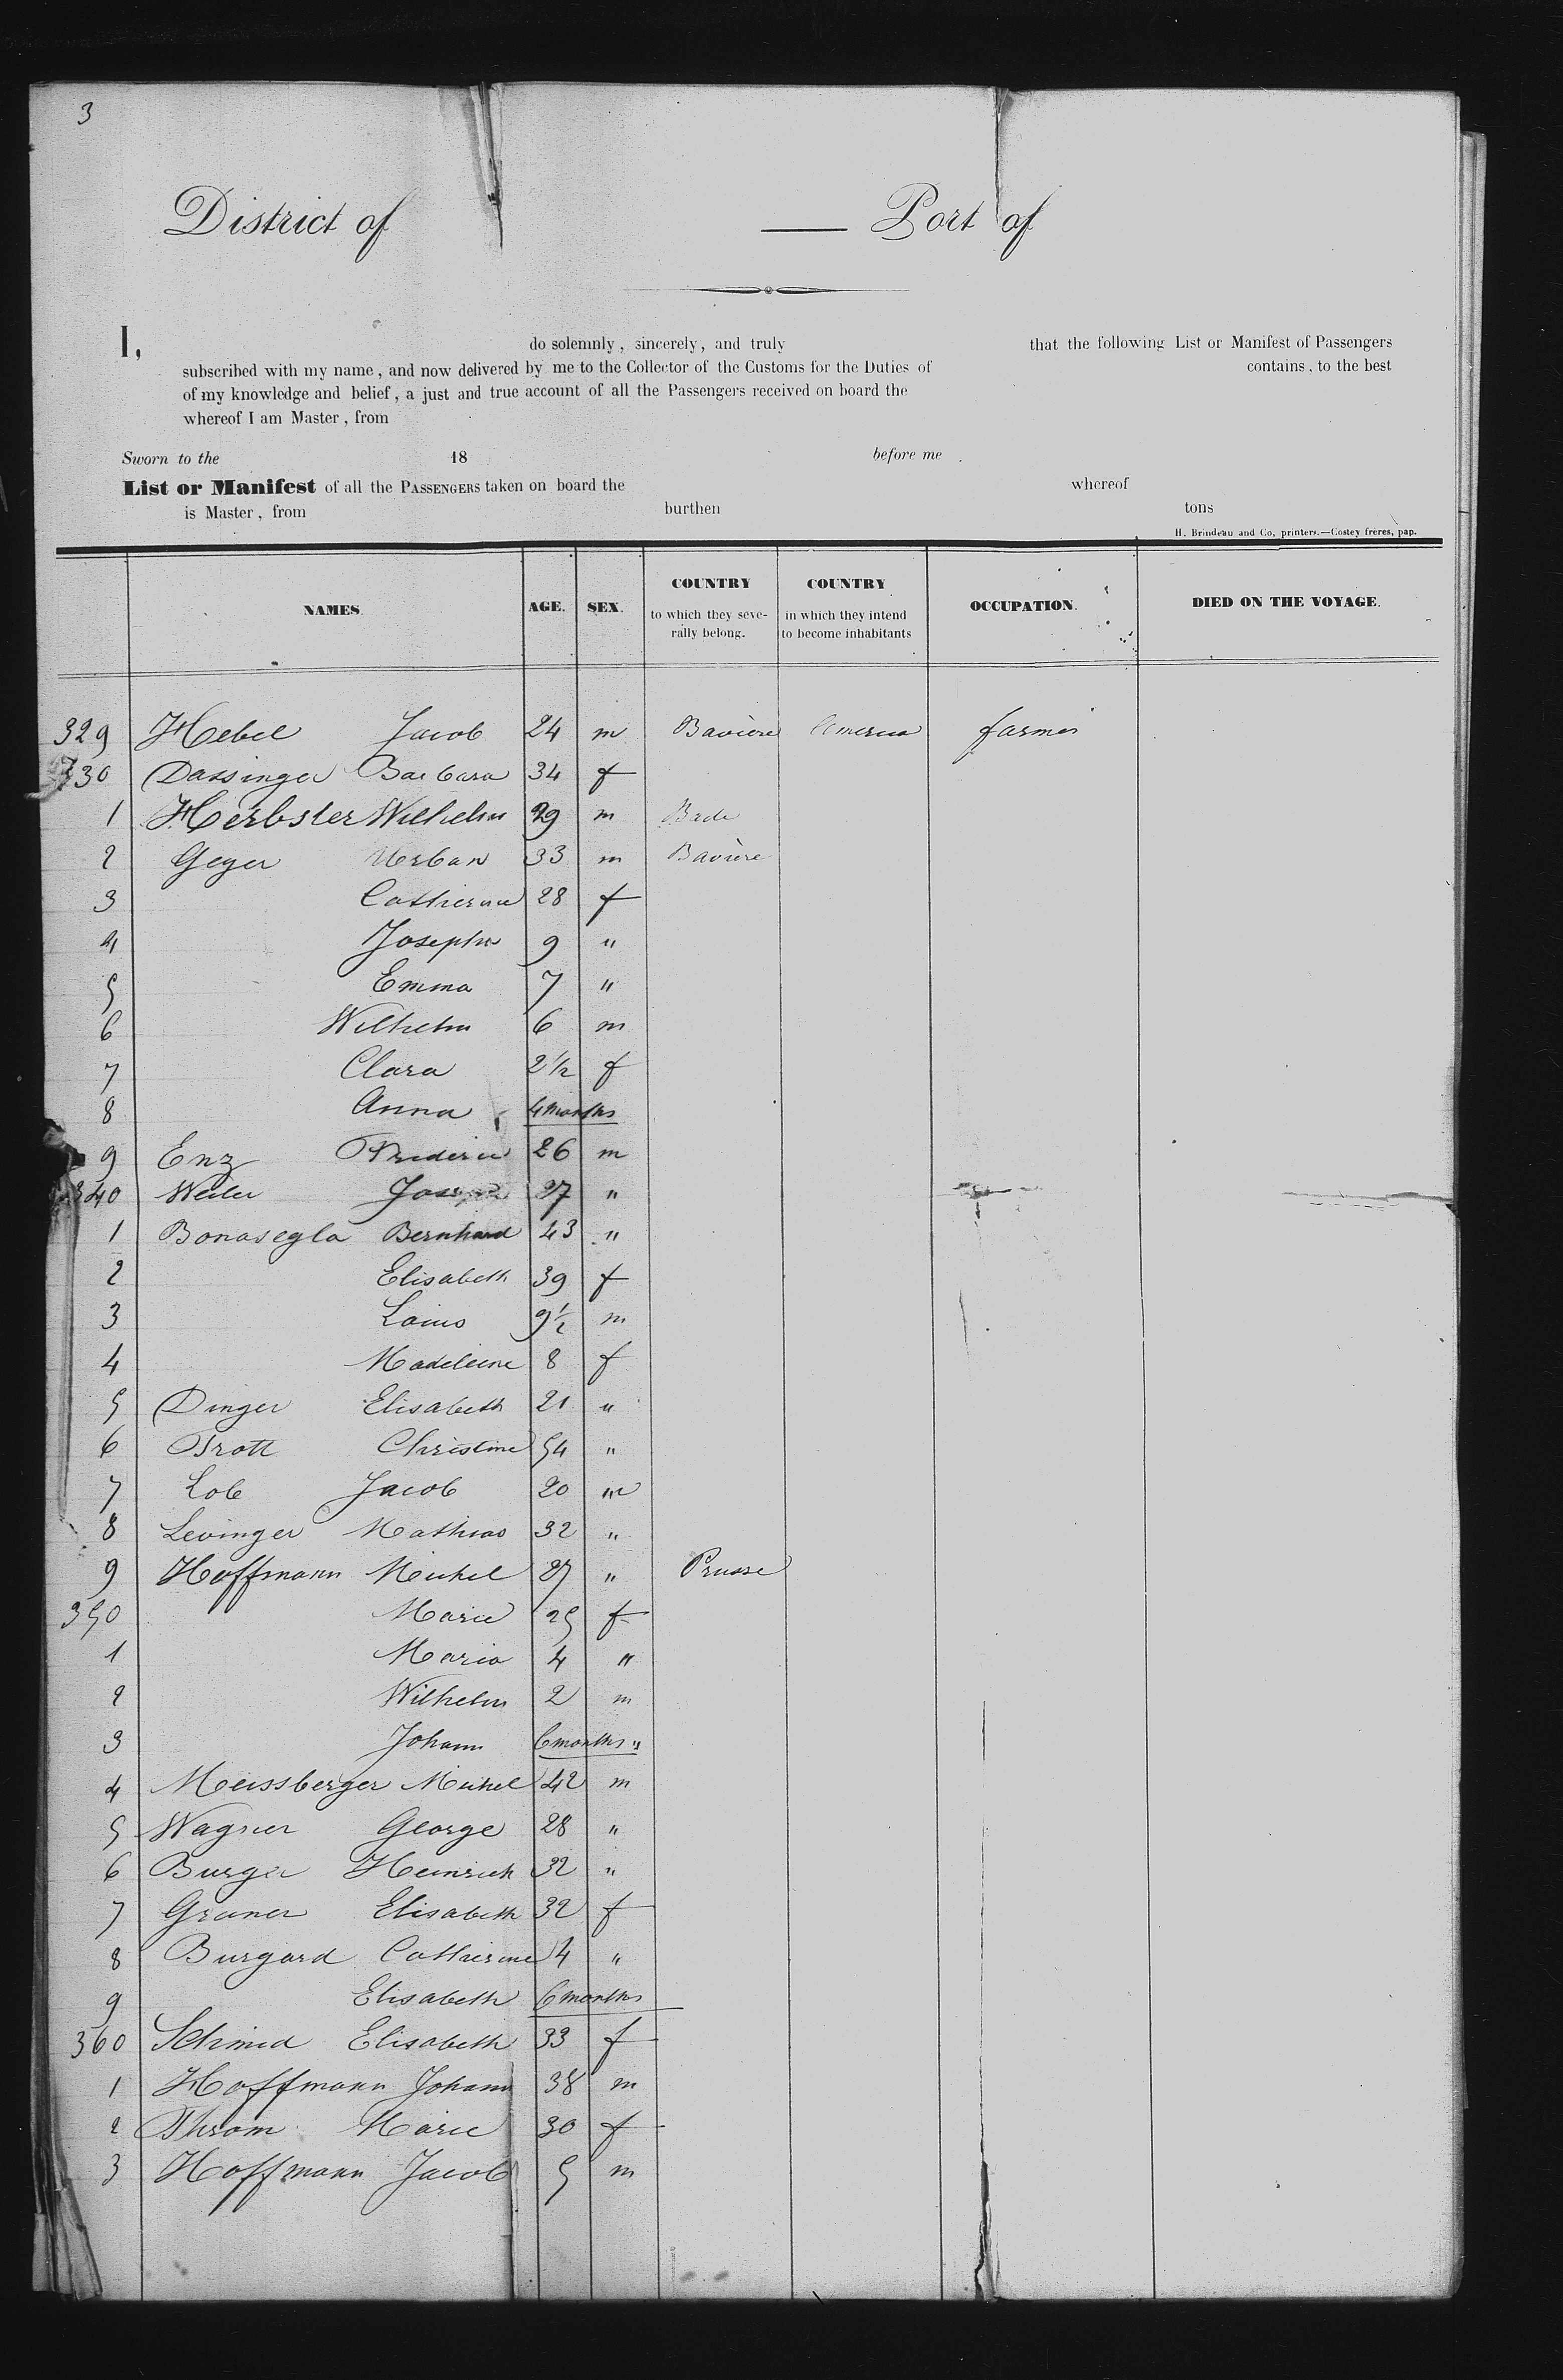 3
District of — Port of
I, do solemnly, sincerely, and truly that the following List or Manifest of Passengers
subscribed with my name, and now delivered by me to the Collector of the Customs for the Duties of contains, to the best
of my knowledge and belief, a just and true account of all the Passengers received on board the
whereof I am Master, from
Sworn to the 18 before me
List or Manifest of all the PASSENGERS taken on board the whereof
is Master, from burthen tons
H. Brindeau and Co, printers.—Costey frères, pap.
NAMES. AGE. SEX. COUNTRY to which they seve-rally belong. COUNTRY in which they intend to become inhabitants OCCUPATION. DIED ON THE VOYAGE.
329 Hebel Jacob 24 m Bavière America farmer
330 Dassinger Barbara 34 f
1 Herbster Wilhelm 29 m Bade
2 Geyer Urban 33 m Bavière
3 Catherine 28 f
4 Josephe 9 "
5 Emma 7 "
6 Wilhelm 6 m
7 Clara 2 1/2 f
8 Anna 4 months
9 Enz Frederic 26 m
340 Weiler 27 "
1 Bonasegla Bernhard 43 "
2 Elisabeth 39 f
3 Louis 9 1/2 m
4 Madeleine 8 f
5 Dinger Elisabeth 21 "
6 Trott Christine 54 "
7 Lob Jacob 20 m
8 Levinger Mathias 32 "
9 Hoffmann Michel 27 " Prusse
350 Marie 25 f
1 Maria 4 "
2 Wilhelm 2 m
3 Johann 6 months "
4 Meissberger Michel 42 m
5 Wagner George 28 "
6 Burger Heinrich 32 "
7 Graner Elisabeth 32 f
8 Burgard Catherine 4 "
9 Elisabeth 6 months
360 Schmid Elisabeth 33 f
1 Hoffmann Johann 38 m
2 Throm Marie 30 f
3 Hoffmann Jacob 5 m